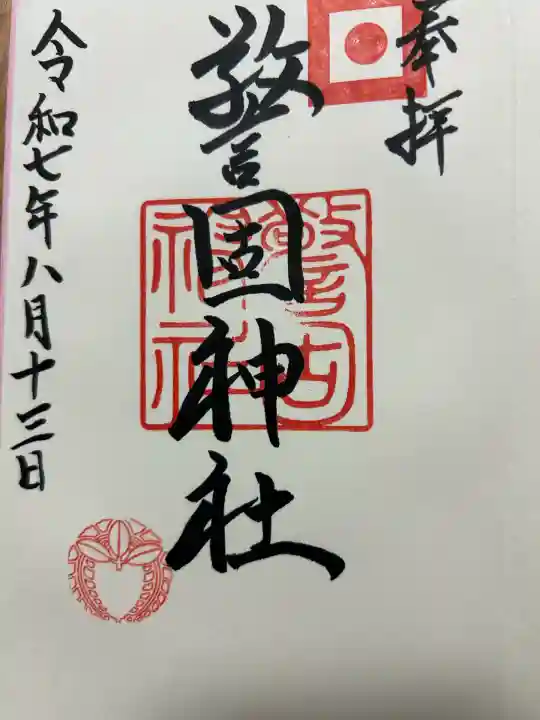 奉拝
警固神社
令和七年八月十三日